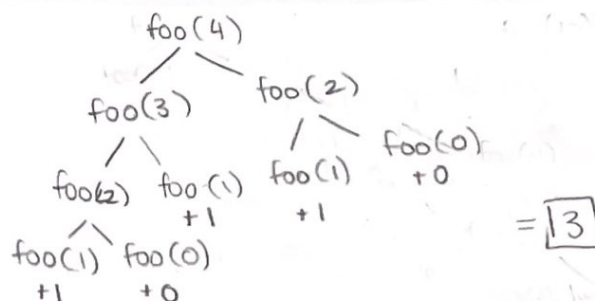 foo(4)
foo(3) foo(2)
foo(2) foo(1) foo(1) foo(0)
+1 +1 +0
= 3
foo(1) foo(0)
+1 +0